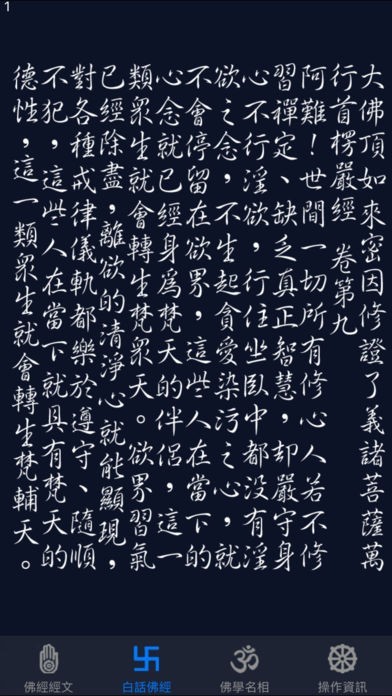 1
大佛頂如來密因修證了義諸菩薩萬
行首楞嚴經 卷第九
阿難！世間一切所有修心人若不修
習禪定、缺乏真正智慧，却嚴守身
心不行淫欲，行住坐臥中都没有淫
欲之念，不生起貪愛染污之心，就
不會停留在欲界，這些人在當下的
心念就已經身爲梵天的伴侶，這一
類眾生就會轉生梵眾天。欲界習氣
已經除盡，離欲的清淨心就能顯現，
對各種戒律儀軌都樂於遵守、隨順
不犯，這些人在當下就具有梵天的
德性，這一類眾生就會轉生梵輔天。
佛經經文
白話佛經
佛學名相
操作資訊